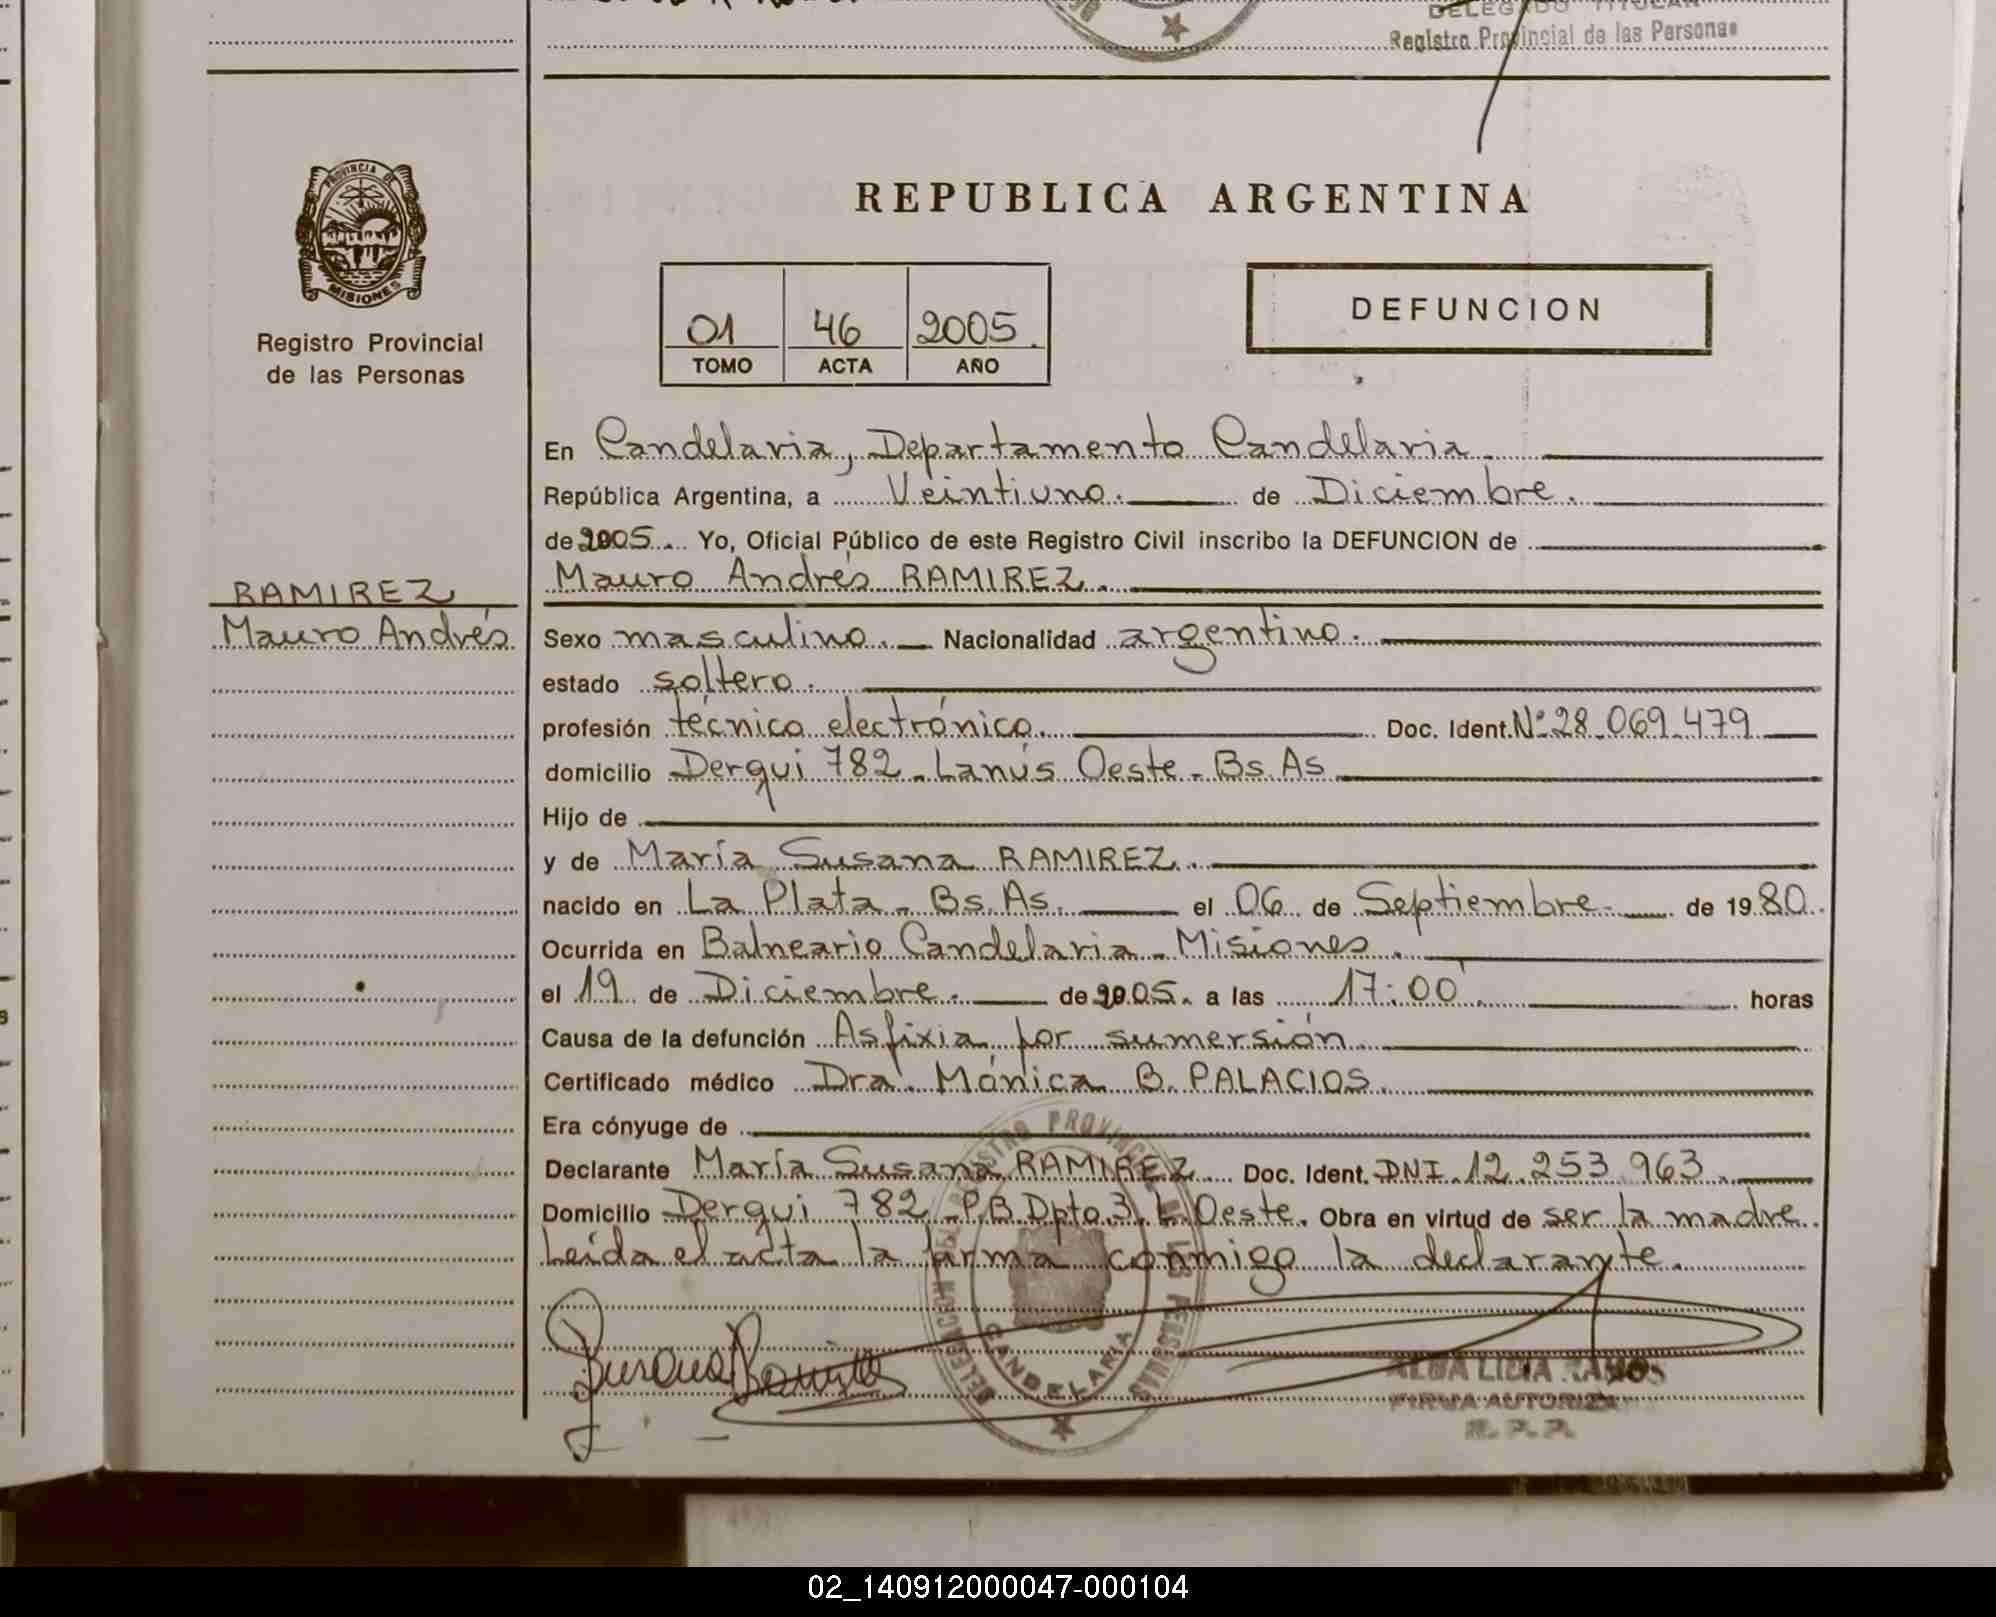 DELEGADO TITULAR
Registro Provincial de las Personas
PROVINCIA DE
MISIONES
Registro Provincial
de las Personas
REPUBLICA ARGENTINA
01 46 2005.
TOMO ACTA AÑO
DEFUNCION
En Candelaria, Departamento Candelaria.
República Argentina, a Veintiuno. de Diciembre.
de 2005. Yo, Oficial Público de este Registro Civil inscribo la DEFUNCION de
Mauro Andrés RAMIREZ.
RAMIREZ
Mauro Andrés
Sexo masculino. Nacionalidad argentino.
estado soltero.
profesión técnico electrónico. Doc. Ident. Nº 28.069.479
domicilio Derqui 782 - Lanús Oeste - Bs. As
Hijo de
y de María Susana RAMIREZ.
nacido en La Plata - Bs. As. el 06 de Septiembre. de 1980.
Ocurrida en Balneario Candelaria - Misiones.
el 19 de Diciembre. de 2005. a las 17:00 horas
Causa de la defunción Asfixia por sumersión.
Certificado médico Dra. Mónica B. PALACIOS.
Era cónyuge de
Declarante María Susana RAMIREZ. Doc. Ident. DNI. 12.253.963.
Domicilio Derqui 782 - P.B. Dpto. 3, L. Oeste. Obra en virtud de ser la madre.
Leída el acta la firma conmigo la declarante.
REGISTRO PROVINCIAL DE LAS PERSONAS
DELEGACION
CANDELARIA
Susana Ramirez
ALBA LIDIA RAMOS
FIRMA AUTORIZADA
R. P. P.
02_140912000047-000104